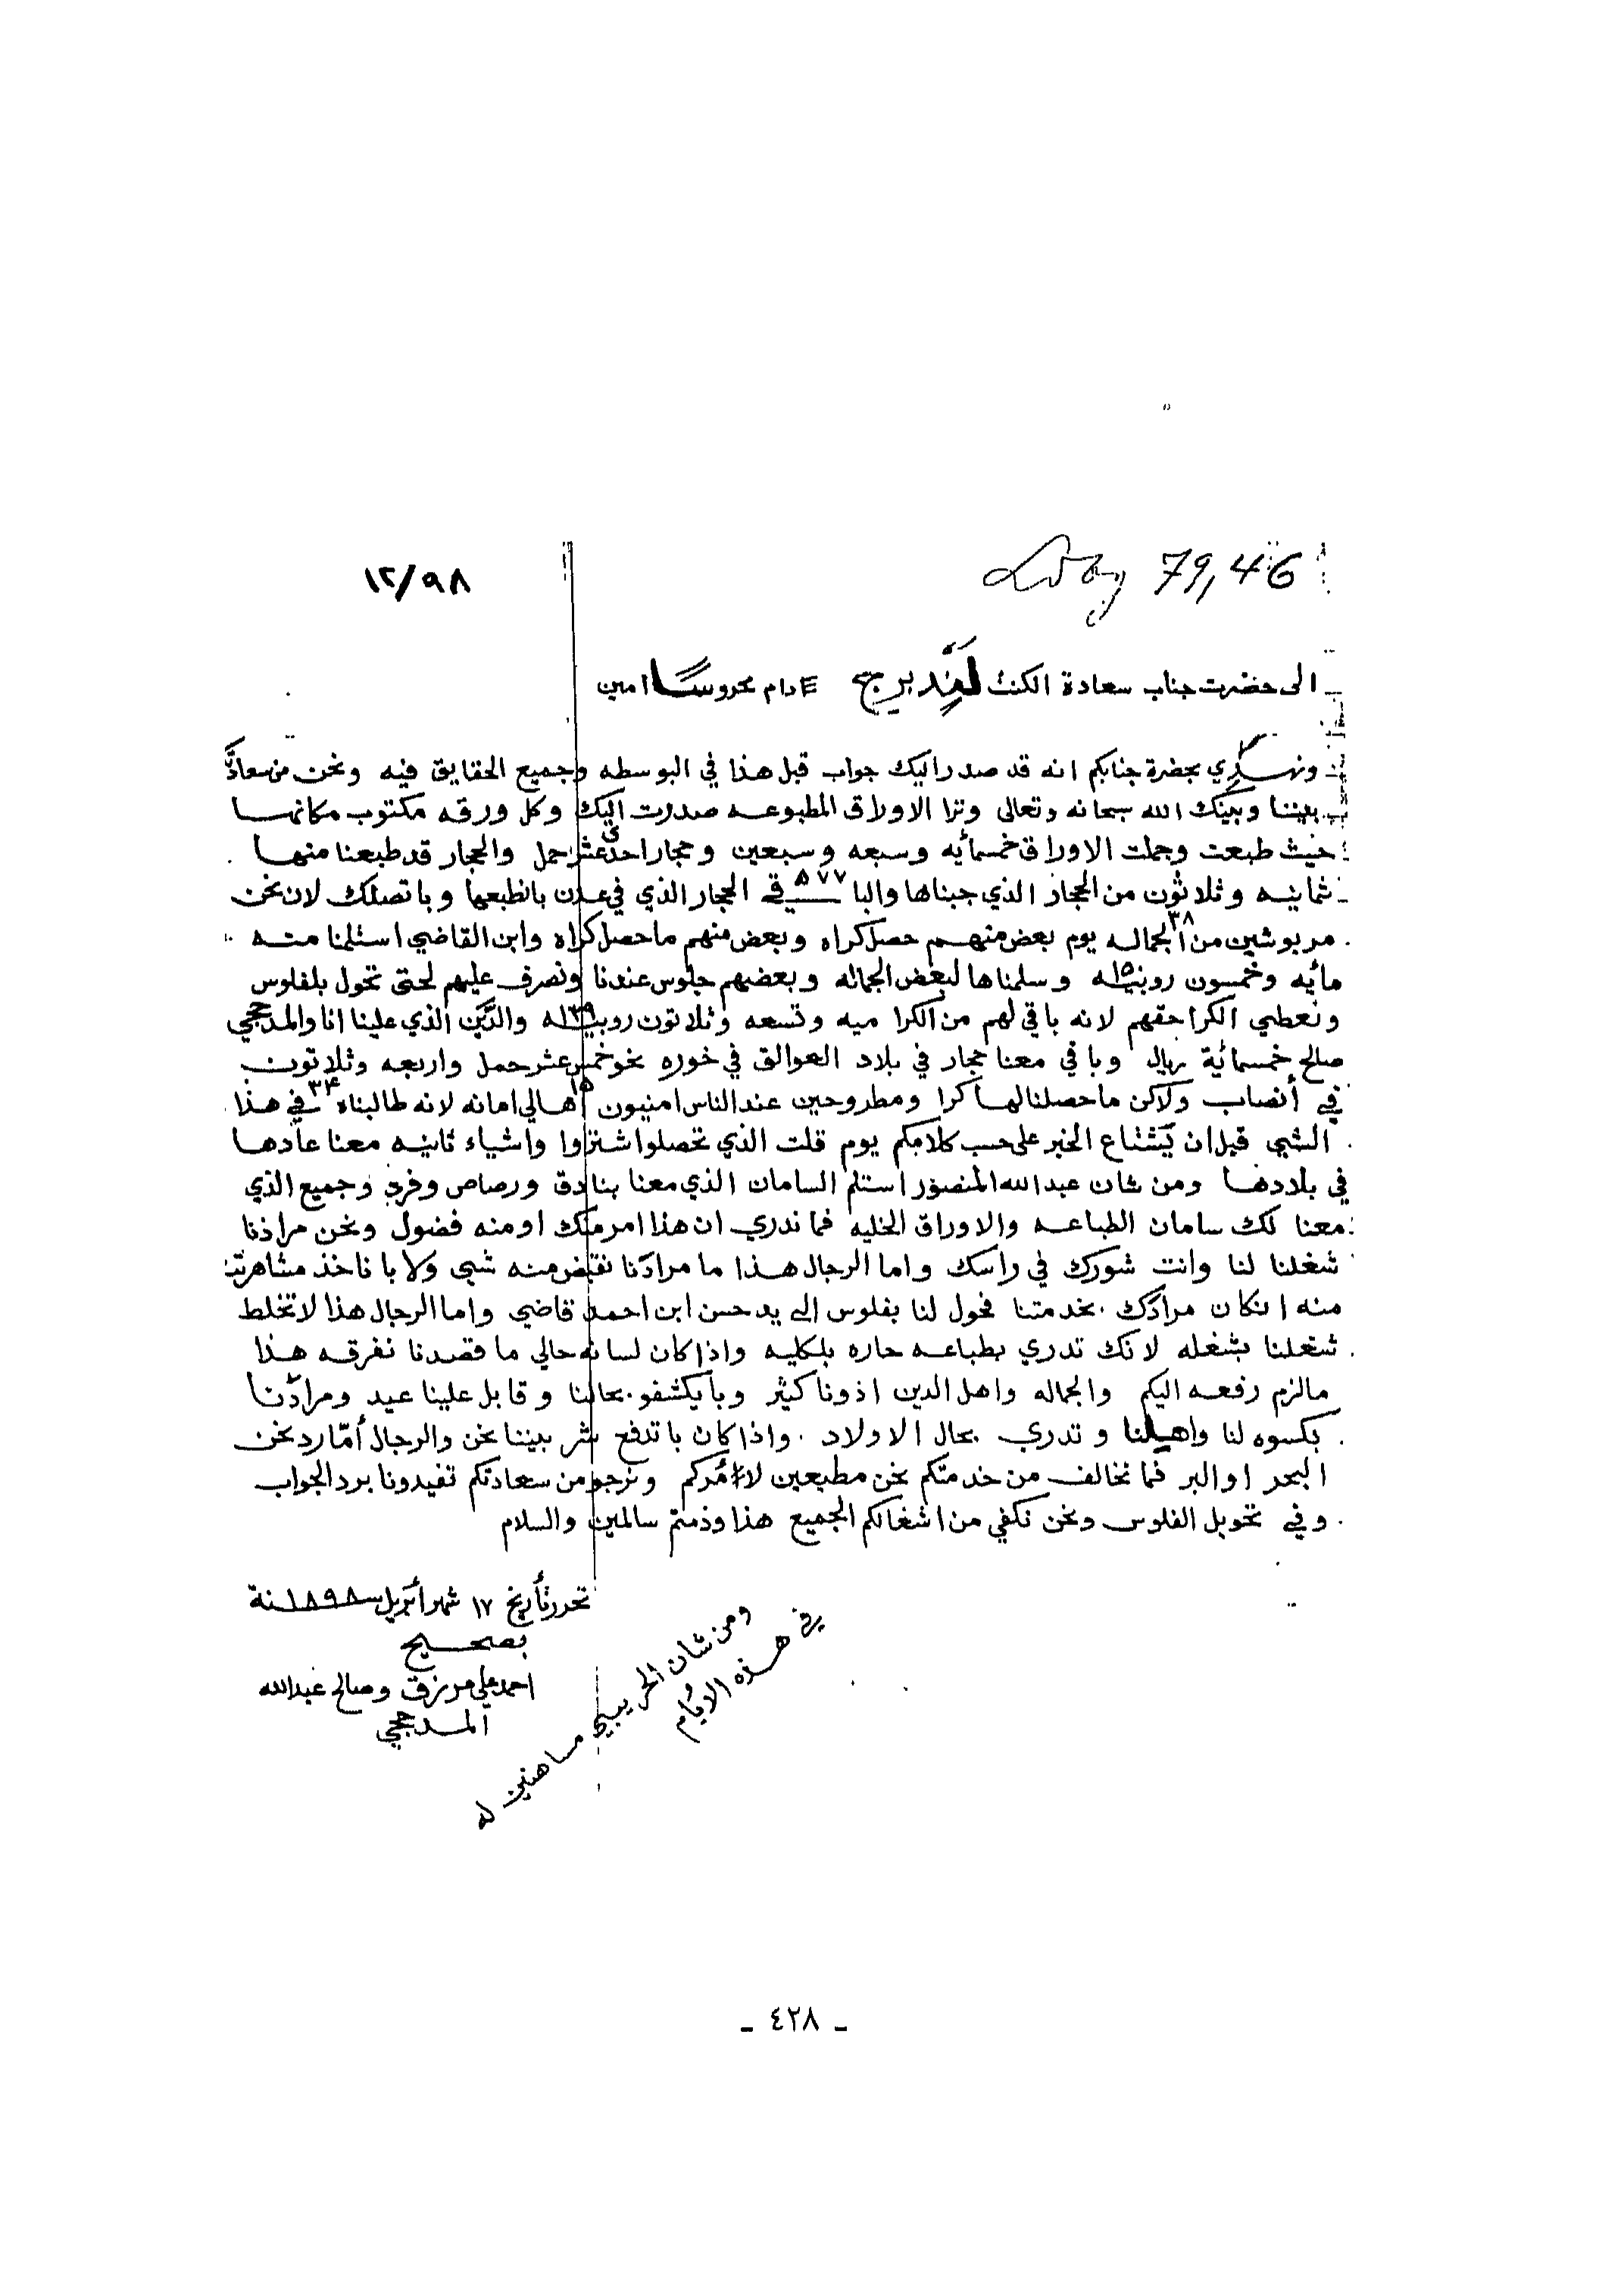 79,46
١٢/٩٨
الى حضرت جناب سعادة الكنت لندبرج دام محروسًا امين
ونهدي بحضرة جنابكم انه قد صدر اليك جواب قبل هذا في البوسطه وجميع الحقايق فيه ونحن من
بيننا وبينك الله سبحانه وتعالى وترا الاوراق المطبوعه صدرت اليك وكل ورقه مكتوب مكانها
حيث طبعت وجملت الاوراق خمسمائه وسبعه وسبعين وحجار احدى عشر حمل والحجار قد طبعنا منها
٥٧٧
ثمانيه وثلاثون من الحجار الذي جبناها والباقي الحجار الذي في عدن بانطبعها وباتصلك لان نحن
٣٨
مربوشين من الجماله يوم بعض منهم حصل كراه وبعض منهم ما حصل كراه وابن القاضي استلمنا منه
مائه وخمسون روبيه وسلمناها لبعض الجماله وبعضهم جلوس عندنا ونصرف عليهم لحتى تحول بلفلوس
ونعطي الكرا حقهم لانه باقي لهم من الكرا ميه وتسعه وثلاثون روبيه والدَّين الذي علينا انا والمدحجي
صالح خمسمائة ريال وباقي معنا حجار في بلاد العوالق في خوره نحو خمس عشر حمل واربعه وثلاثون
في أنصاب ولاكن ما حصلنا لها كرا ومطروحين عند الناس امنيون اهالي امانه لانه طالبناه في هذا
١٥ ٣٤
الشي قبل ان يشتاع الخبر على حسب كلامكم يوم قلت الذي تحصلوا اشتروا واشياء ثانيه معنا عادها
في بلادها ومن شان عبدالله المنصور استلم السامان الذي معنا بنادق ورصاص وفرد وجميع الذي
معنا لك سامان الطباعه والاوراق الخليه فما ندري ان هذا امر منك او منه فضول ونحن مرادنا
شغلنا لنا وانت شورك في راسك واما الرجال هذا ما مرادنا نقبض منه شي ولا با ناخذ
منه انكان مرادك بخدمتنا فحول لنا بفلوس الى يد حسن ابن احمد قاضي واما الرجال هذا لا تخلط
شغلنا بشغله لانك تدري بطباعه حاره بلكليه واذا كان لسانه حالي ما قصدنا نفرقه هذا
مالزم رفعه اليكم والجماله واهل الدين اذونا كثير وبا يكشفو بحالنا وقابل علينا عيد ومرادنا
بكسوه لنا واهيلنا وتدري بحال الاولاد واذا كان با تدفع شر بيننا نحن والرجال أمّا رد نحن
البحر او البر فما نخالف من خدمتكم نحن مطيعين لأمركم ونرجو من سعادتكم تفيدونا برد الجواب
وفي تحويل الفلوس ونحن نكفي من اشغالكم الجميع هذا وذمتم سالمين والسلام
تحرر تأريخ ١٧ شهر أبريل سنة ١٨٩٨
بصحيح
احمد علي مرزق وصالح عبدالله
المدحجي
ومن شان الحريبي مساهنين له
في هذه الايام
ـ ٤٢٨ ـ